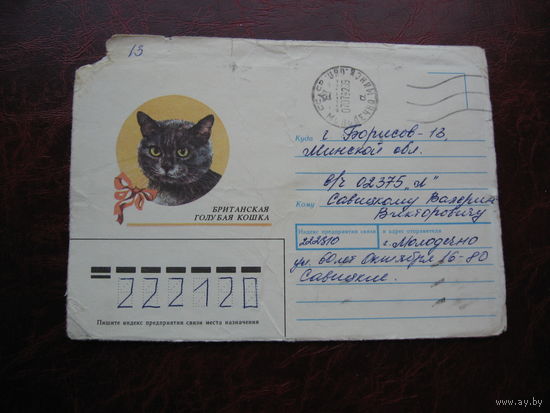 13
Куда г Борисов-13,
Минской обл.
в/ч 02375 "Л"
Кому Савицкому Валерию
Викторовичу
Индекс предприятия связи и адрес отправителя
222310 г. Молодечно
ул. 60 лет Октября 16-80
Савицкие.
БРИТАНСКАЯ
ГОЛУБАЯ КОШКА
222120
Пишите индекс предприятия связи места назначения
www.ay.by